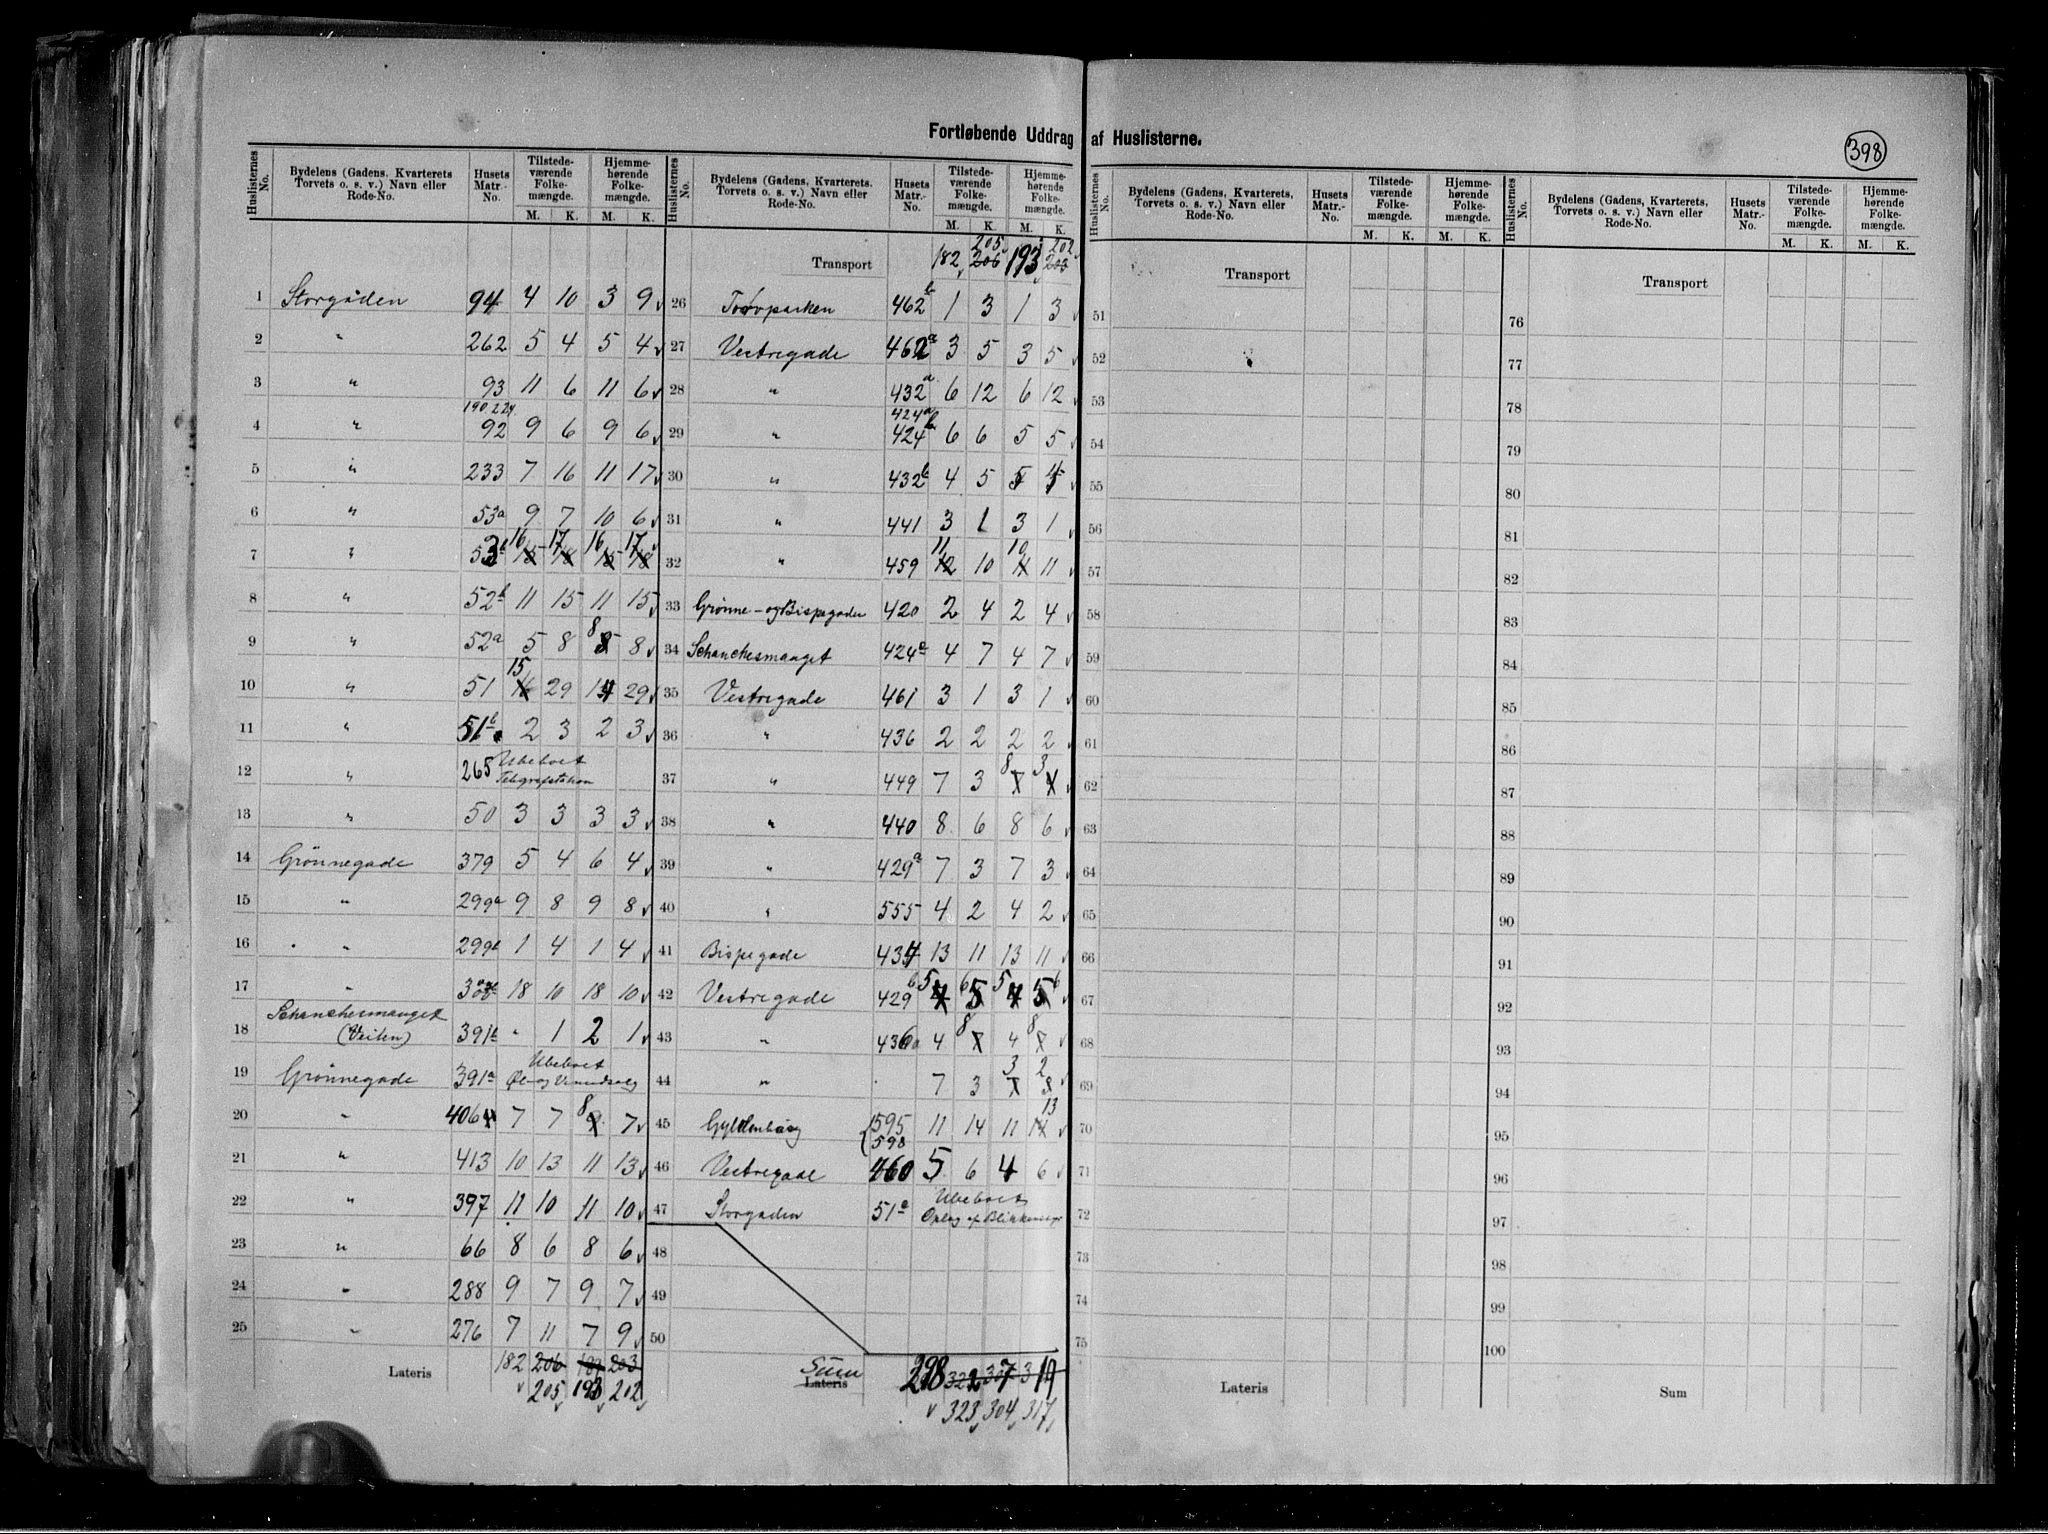 Fortløbende Uddrag af Huslisterne.
398
Huslisternes No. Bydelens (Gadens, Kvarterets, Torvets o. s. v.) Navn eller Rode-No. Husets Matr.-No. Tilstedeværende Folkemængde. M. K. Hjemmehørende Folkemængde. M. K.
1 Storgaden 94 4 10 3 9
2 " 262 5 4 5 4
3 " 93 11 6 11 6
190 224
4 " 92 9 6 9 6
5 " 233 7 16 11 17
6 " 53a 9 7 10 6
16 17 16 17
7 " 53b 15 18 15 18
8 " 52b 11 15 11 15
9 " 52a 5 8 8 8
15
10 " 51 16 29 14 29
11 " 51b 2 3 2 3
12 " 265 Ubeboet Telegrafstation
13 " 50 3 3 3 3
14 Grønnegade 379 5 4 6 4
15 " 299a 9 8 9 8
16 " 299b 1 4 1 4
17 " 18 10 18 10
18 Schanchesmauget (Veiten) 391b " 1 2 1
19 Grønnegade 391a Ubeboet Øl- og Vinudsalg
20 " 406 7 7 8 7
21 " 413 10 13 11 13
22 " 397 11 10 11 10
23 " 66 8 6 8 6
24 " 288 9 7 9 7
25 " 276 7 11 7 9
Lateris 182 206 193 203
205 193 202
Huslisternes No. Bydelens (Gadens, Kvarterets, Torvets o. s. v.) Navn eller Rode-No. Husets Matr.-No. Tilstedeværende Folkemængde. M. K. Hjemmehørende Folkemængde. M. K.
205 202
Transport 182 206 193 203
26 Torvparken 462b 1 3 1 3
27 Vestregade 462a 3 5 3 5
28 " 432a 6 12 6 12
424a
29 " 424b 6 6 5 5
30 " 432b 4 5 5 4
31 " 441 3 1 3 1
11 10
32 " 459 12 10 11 11
33 Grønne- og Bispegaden 420 2 4 2 4
34 Schanchesmauget 424a 4 7 4 7
35 Vestregade 461 3 1 3 1
36 " 436 2 2 2 2
8 3
37 " 449 7 3 7 4
38 " 440 8 6 8 6
39 " 429a 7 3 7 3
40 " 555 4 2 4 2
41 Bispegade 434 13 11 13 11
5 6 5 6
42 Vestregade 429b 4 5 4 5
8 8
43 " 436a 4 7 4 7
3 2
44 " 7 3 7 8
13
45 Gyldenborg 595 598 11 14 11 14
46 Vestregade 460 5 6 4 6
47 Storgaden 51a Ubeboet Oplag af
48
49
50
Sum Lateris 298 322 307 319
323 304 317
Huslisternes No. Bydelens (Gadens, Kvarterets, Torvets o. s. v.) Navn eller Rode-No. Husets Matr.-No. Tilstedeværende Folkemængde. M. K. Hjemmehørende Folkemængde. M. K.
Transport
51
52
53
54
55
56
57
58
59
60
61
62
63
64
65
66
67
68
69
70
71
72
73
74
75
Lateris
Huslisternes No. Bydelens (Gadens, Kvarterets, Torvets o. s. v.) Navn eller Rode-No. Husets Matr.-No. Tilstedeværende Folkemængde. M. K. Hjemmehørende Folkemængde. M. K.
Transport
76
77
78
79
80
81
82
83
84
85
86
87
88
89
90
91
92
93
94
95
96
97
98
99
100
Sum